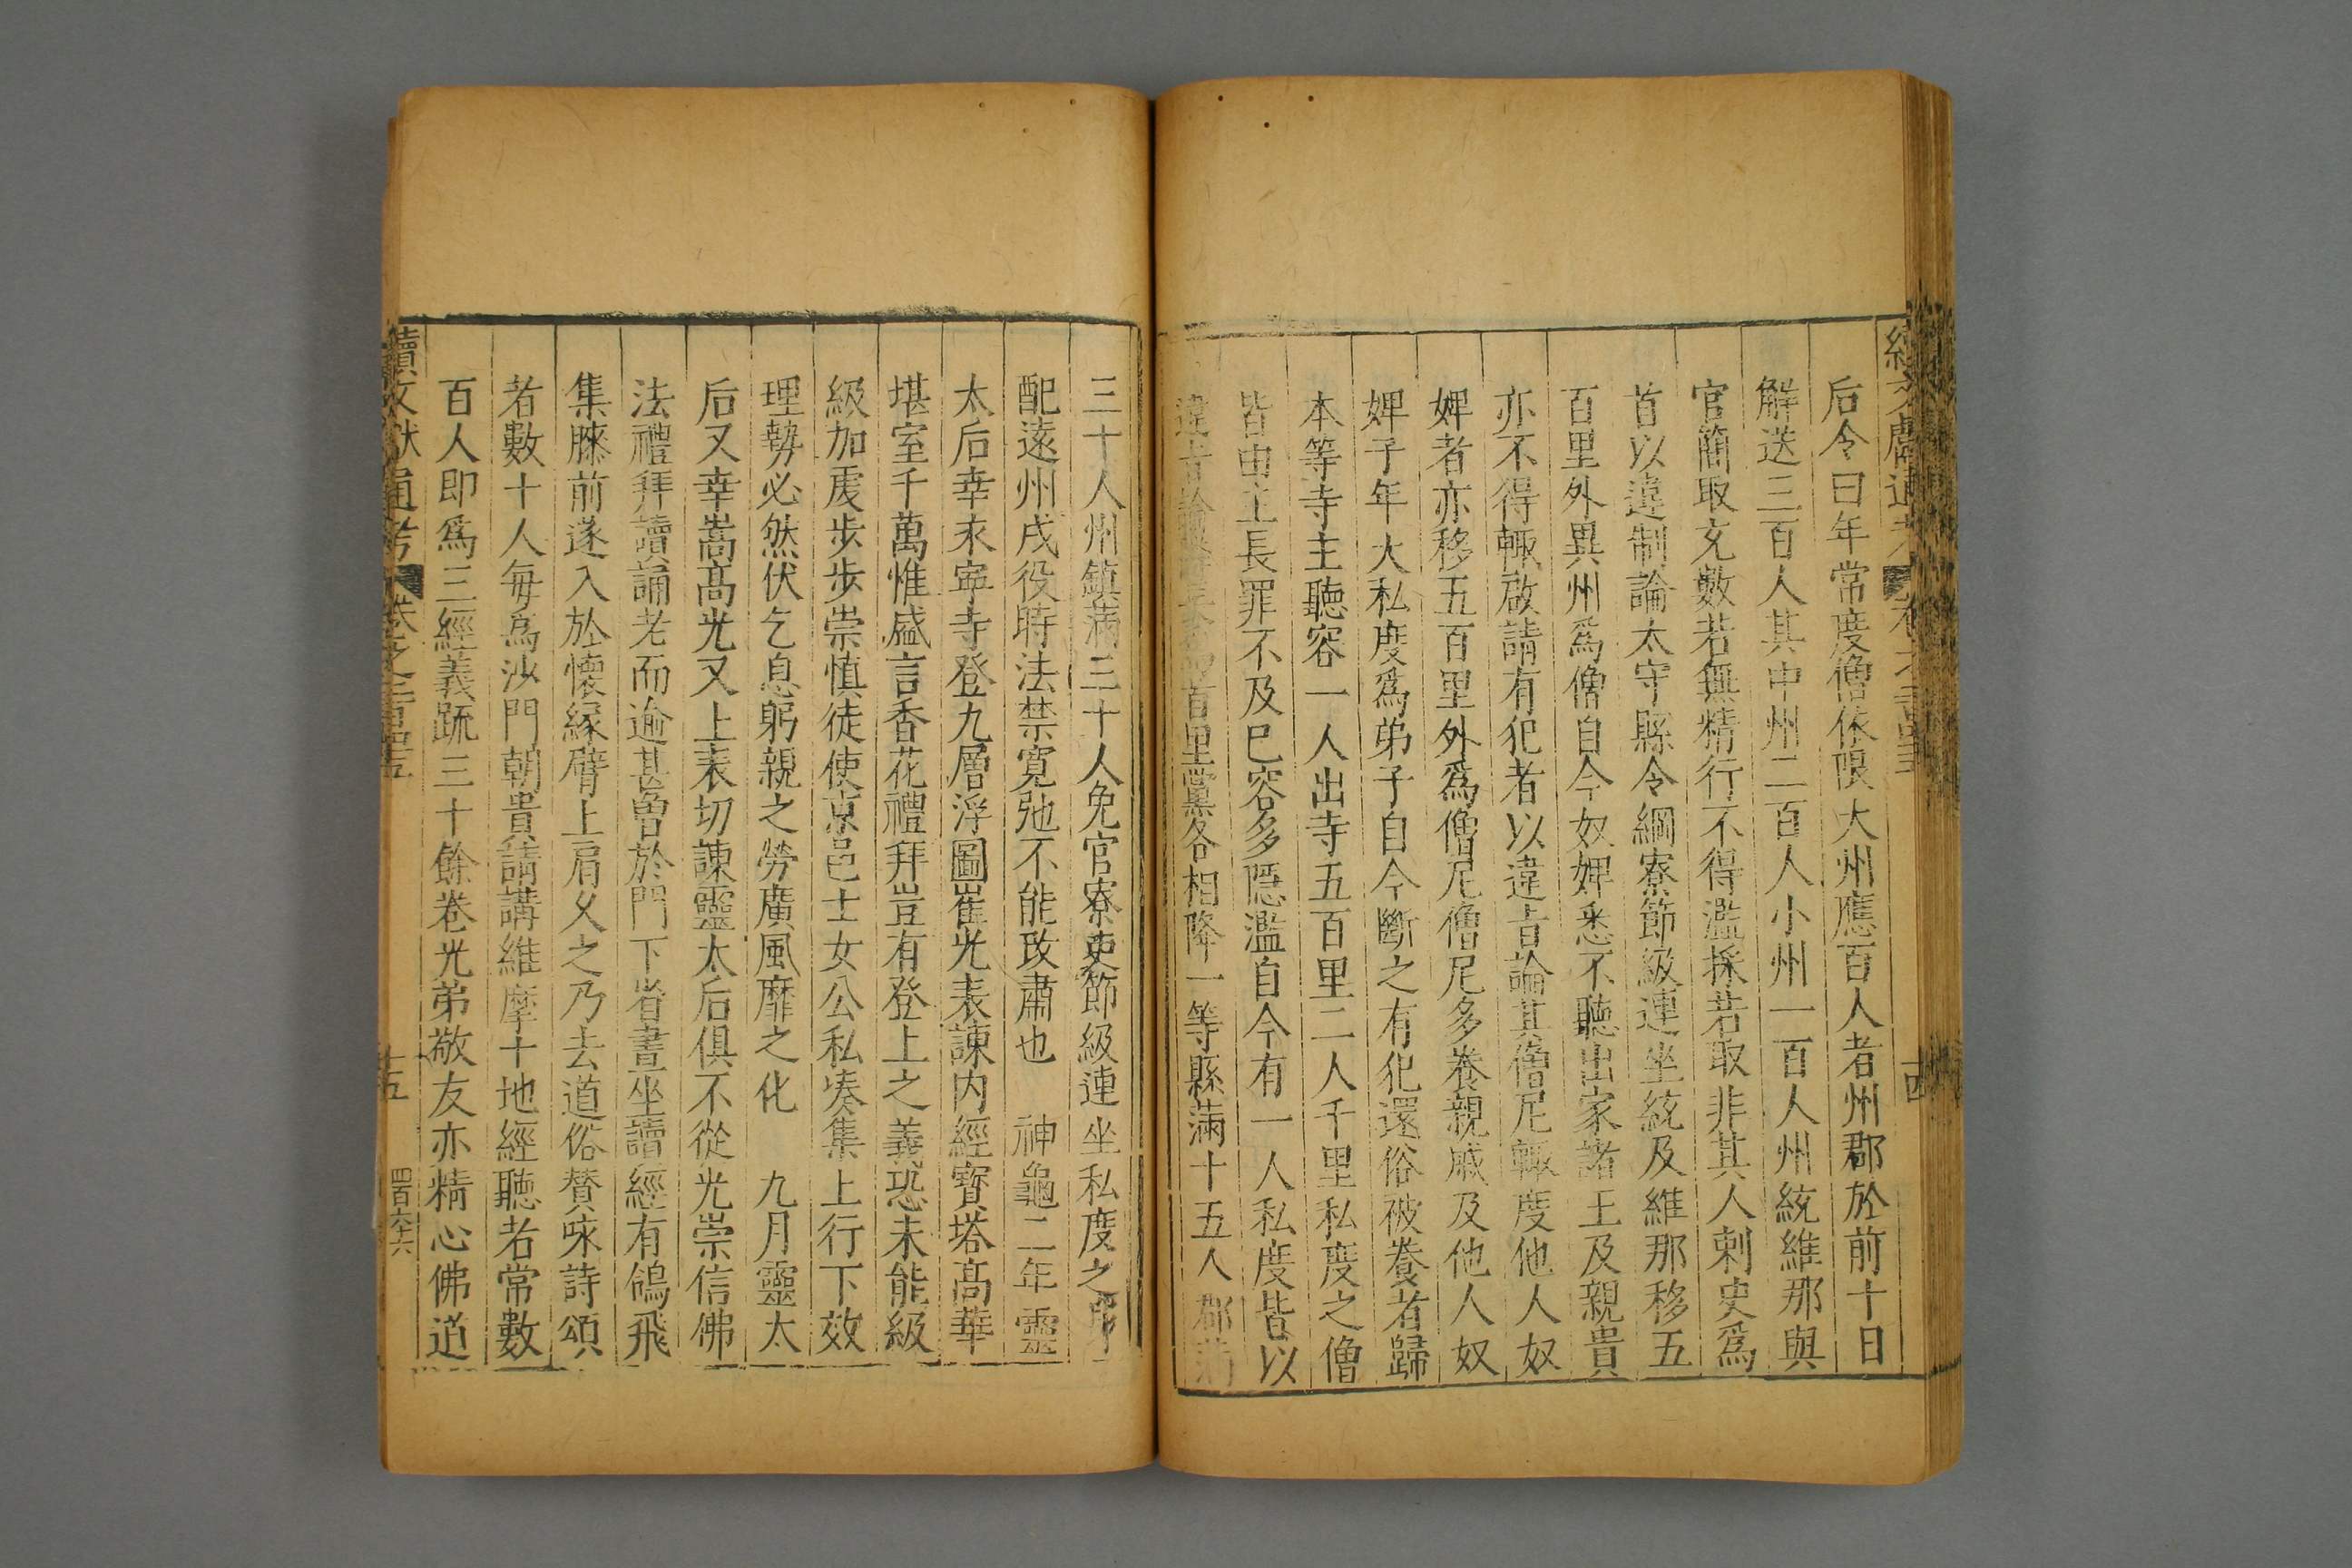 后令曰年常度僧依限大州應百人者州郡於前十日
解送三百人其中州二百人小州一百人州統維那與
官簡取充數若無精行不得濫採若取非其人刺史爲
首以違制論太守縣令綱寮節級連坐統及維那移五
百里外異州爲僧自今奴婢悉不聽出家諸王及親貴
亦不得輒啟請有犯者以違旨論其僧尼輒度他人奴
婢者亦移五百里外爲僧尼僧尼多養親戚及他人奴
婢子年大私度爲弟子自今斷之有犯還俗被養者歸
本等寺主聽容一人出寺五百里二人千里私度之僧
皆由三長罪不及已容多隱濫自今有一人私度皆以
違旨論 首里黨各相降一等縣滿十五人郡滿
三十人州鎮滿三十人免官寮吏節級連坐私度之身
配遠州戍役時法禁寬弛不能改肅也 神龜二年靈
太后幸永寧寺登九層浮圖崔光表諫内經寶塔高華
堪室千萬惟盛言香花禮拜豈有登上之義恐未能級
級加虔步步崇慎徒使京邑士女公私湊集上行下效
理勢必然伏乞息躬親之勞廣風靡之化 九月靈太
后又幸嵩高光又上表切諫靈太后俱不從光崇信佛
法禮拜讀誦老而逾甚曾於門下省晝坐讀經有鴿飛
集膝前遂入於懷緣臂上肩久之乃去道俗賛咏詩頌
者數十人每爲沙門朝貴請講維摩十地經聽若常數
百人即爲三經義疏三十餘卷光弟敬友亦精心佛道
續文獻通考 卷之 十五 四百六十六